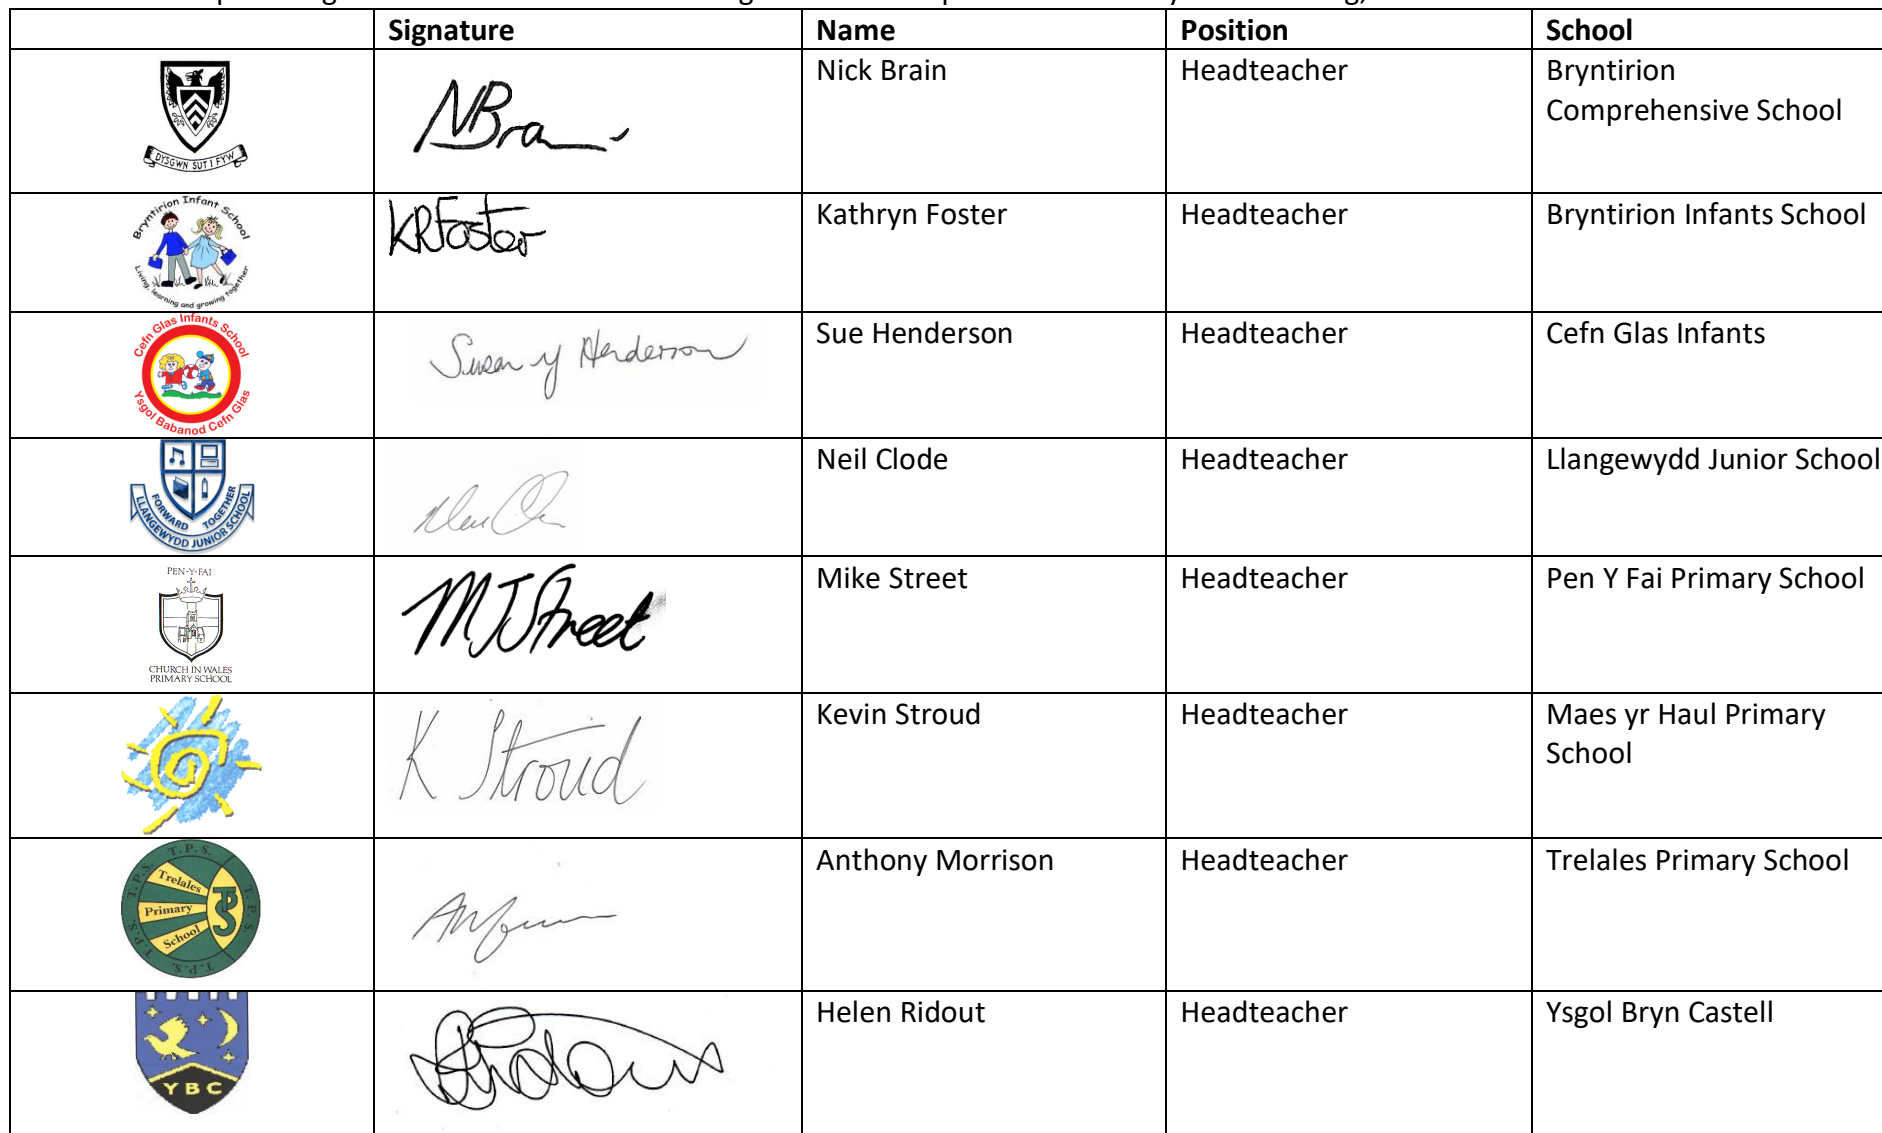 Signature Name Position School
DYSGWN SUT I FYW
NBra Nick Brain Headteacher Bryntirion
Comprehensive School
Bryntirion Infant School
Living, learning and growing together
KRFoster Kathryn Foster Headteacher Bryntirion Infants School
Cefn Glas Infants School
Ysgol Babanod Cefn Glas
Susan y Henderson Sue Henderson Headteacher Cefn Glas Infants
FORWARD TOGETHER
LLANGEWYDD JUNIOR SCHOOL
Neil Clode Headteacher Llangewydd Junior School
PEN-Y-FAI
CHURCH IN WALES
PRIMARY SCHOOL
MJStreet Mike Street Headteacher Pen Y Fai Primary School
K Stroud Kevin Stroud Headteacher Maes yr Haul Primary
School
T.P.S. T.P.S. T.P.S. T.P.S. T.P.S.
Trelales
Primary
School
TPS
Anthony Morrison Headteacher Trelales Primary School
YBC
Helen Ridout Headteacher Ysgol Bryn Castell